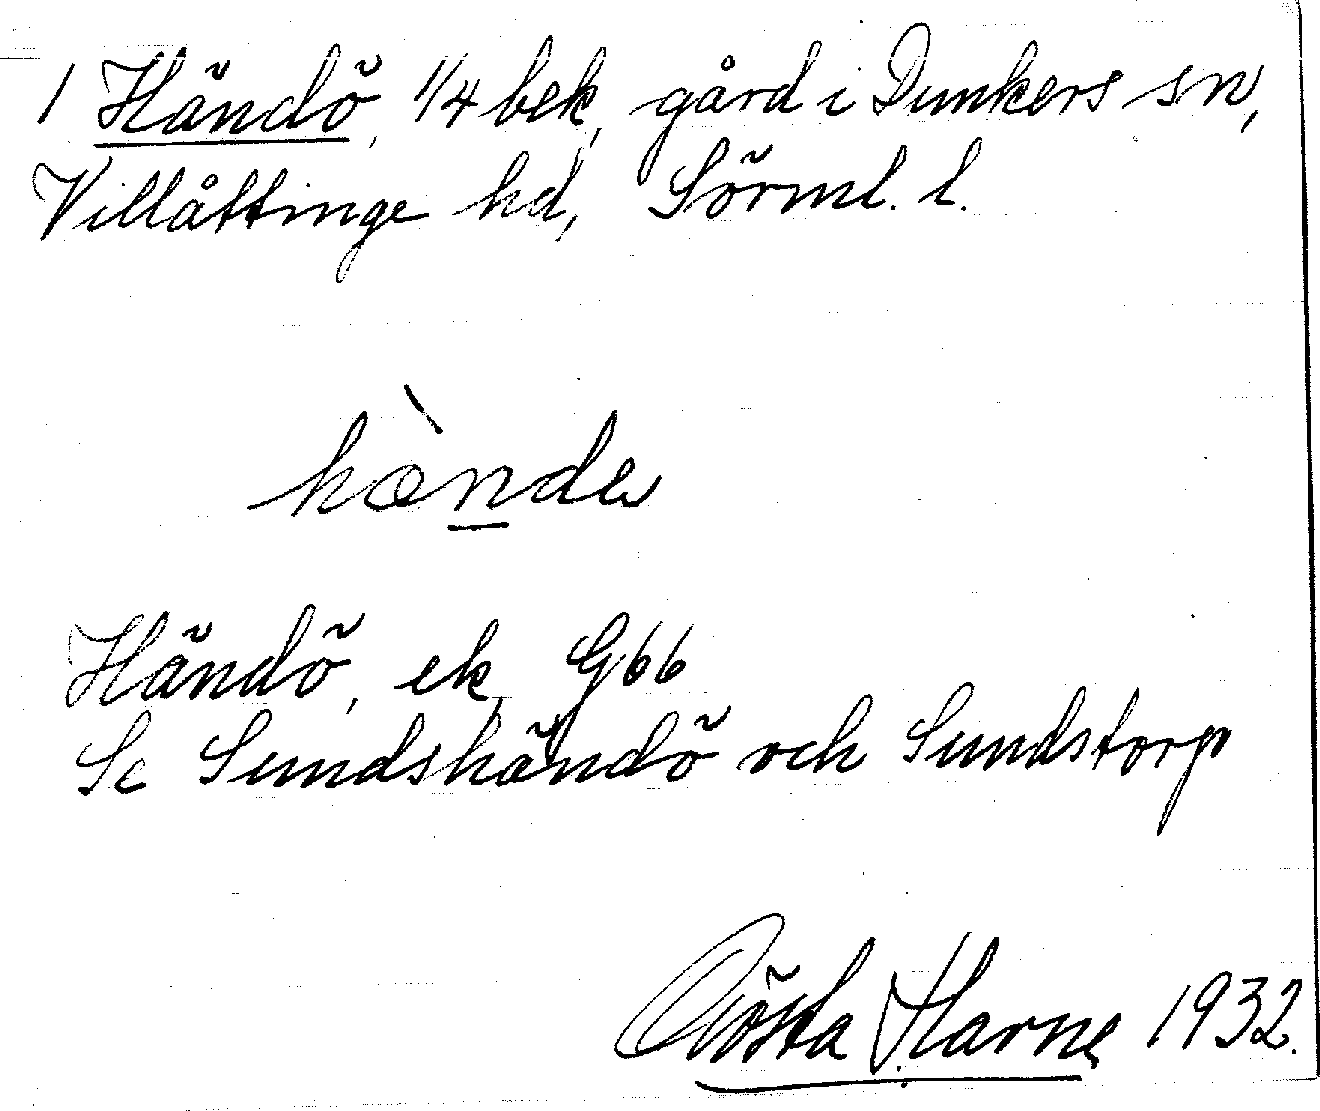 1 Händö, 1/4 bek, gård i Dunkers sn,
Villåttinge hd, Sörml. l.
hæ̀nde
Händö, ek, G66
Se Sundshändö och Sundstorp
Gösta Harne 1932.